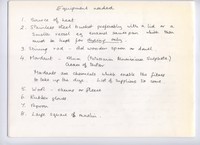 Equipment needed
1. Source of heat
2. Stainless steel bucket preferably with a lid or a
smaller vessel eg enamel saucepan which then
must be kept for dyeing only.
3. Stirring rod - old wooden spoon or dowel.
4. Mordant - Alum (Potassium Aluminium Sulphate)
Cream of Tartar
Mordants are chemicals which enable the fibres
to take up the dye. List of suppliers to come
5. Wool - skeins or fleece
6. Rubber gloves
7. Thermom
8. Large square of muslin